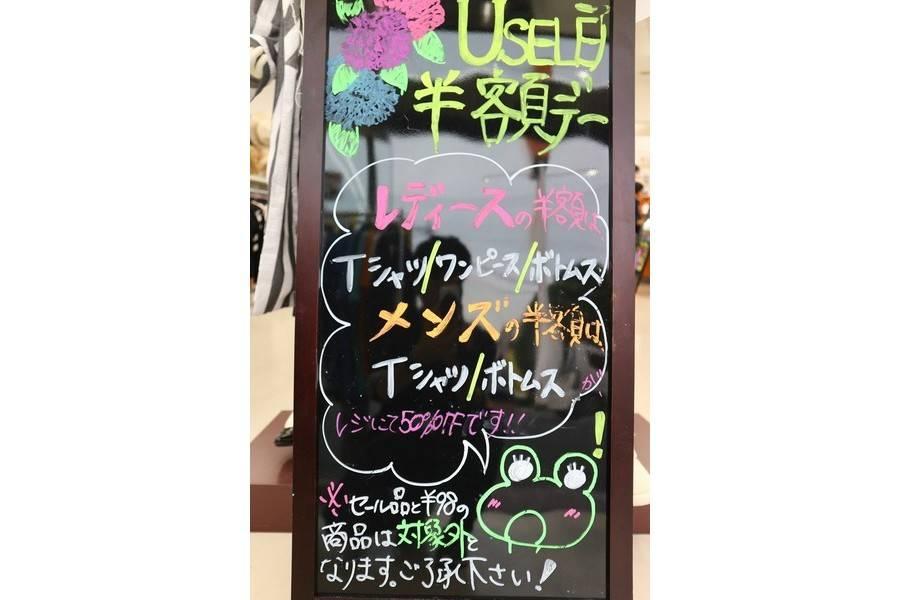 USELEį
半額デー
レディースの半額は
Tシャツ/ワンピース/ボトムス
メンズの半額は
Tシャツ/ボトムス
が、
レジにて50%OFFです!!
!
※セール品と¥98の
商品は対象外と
なります。ご了承下さい!